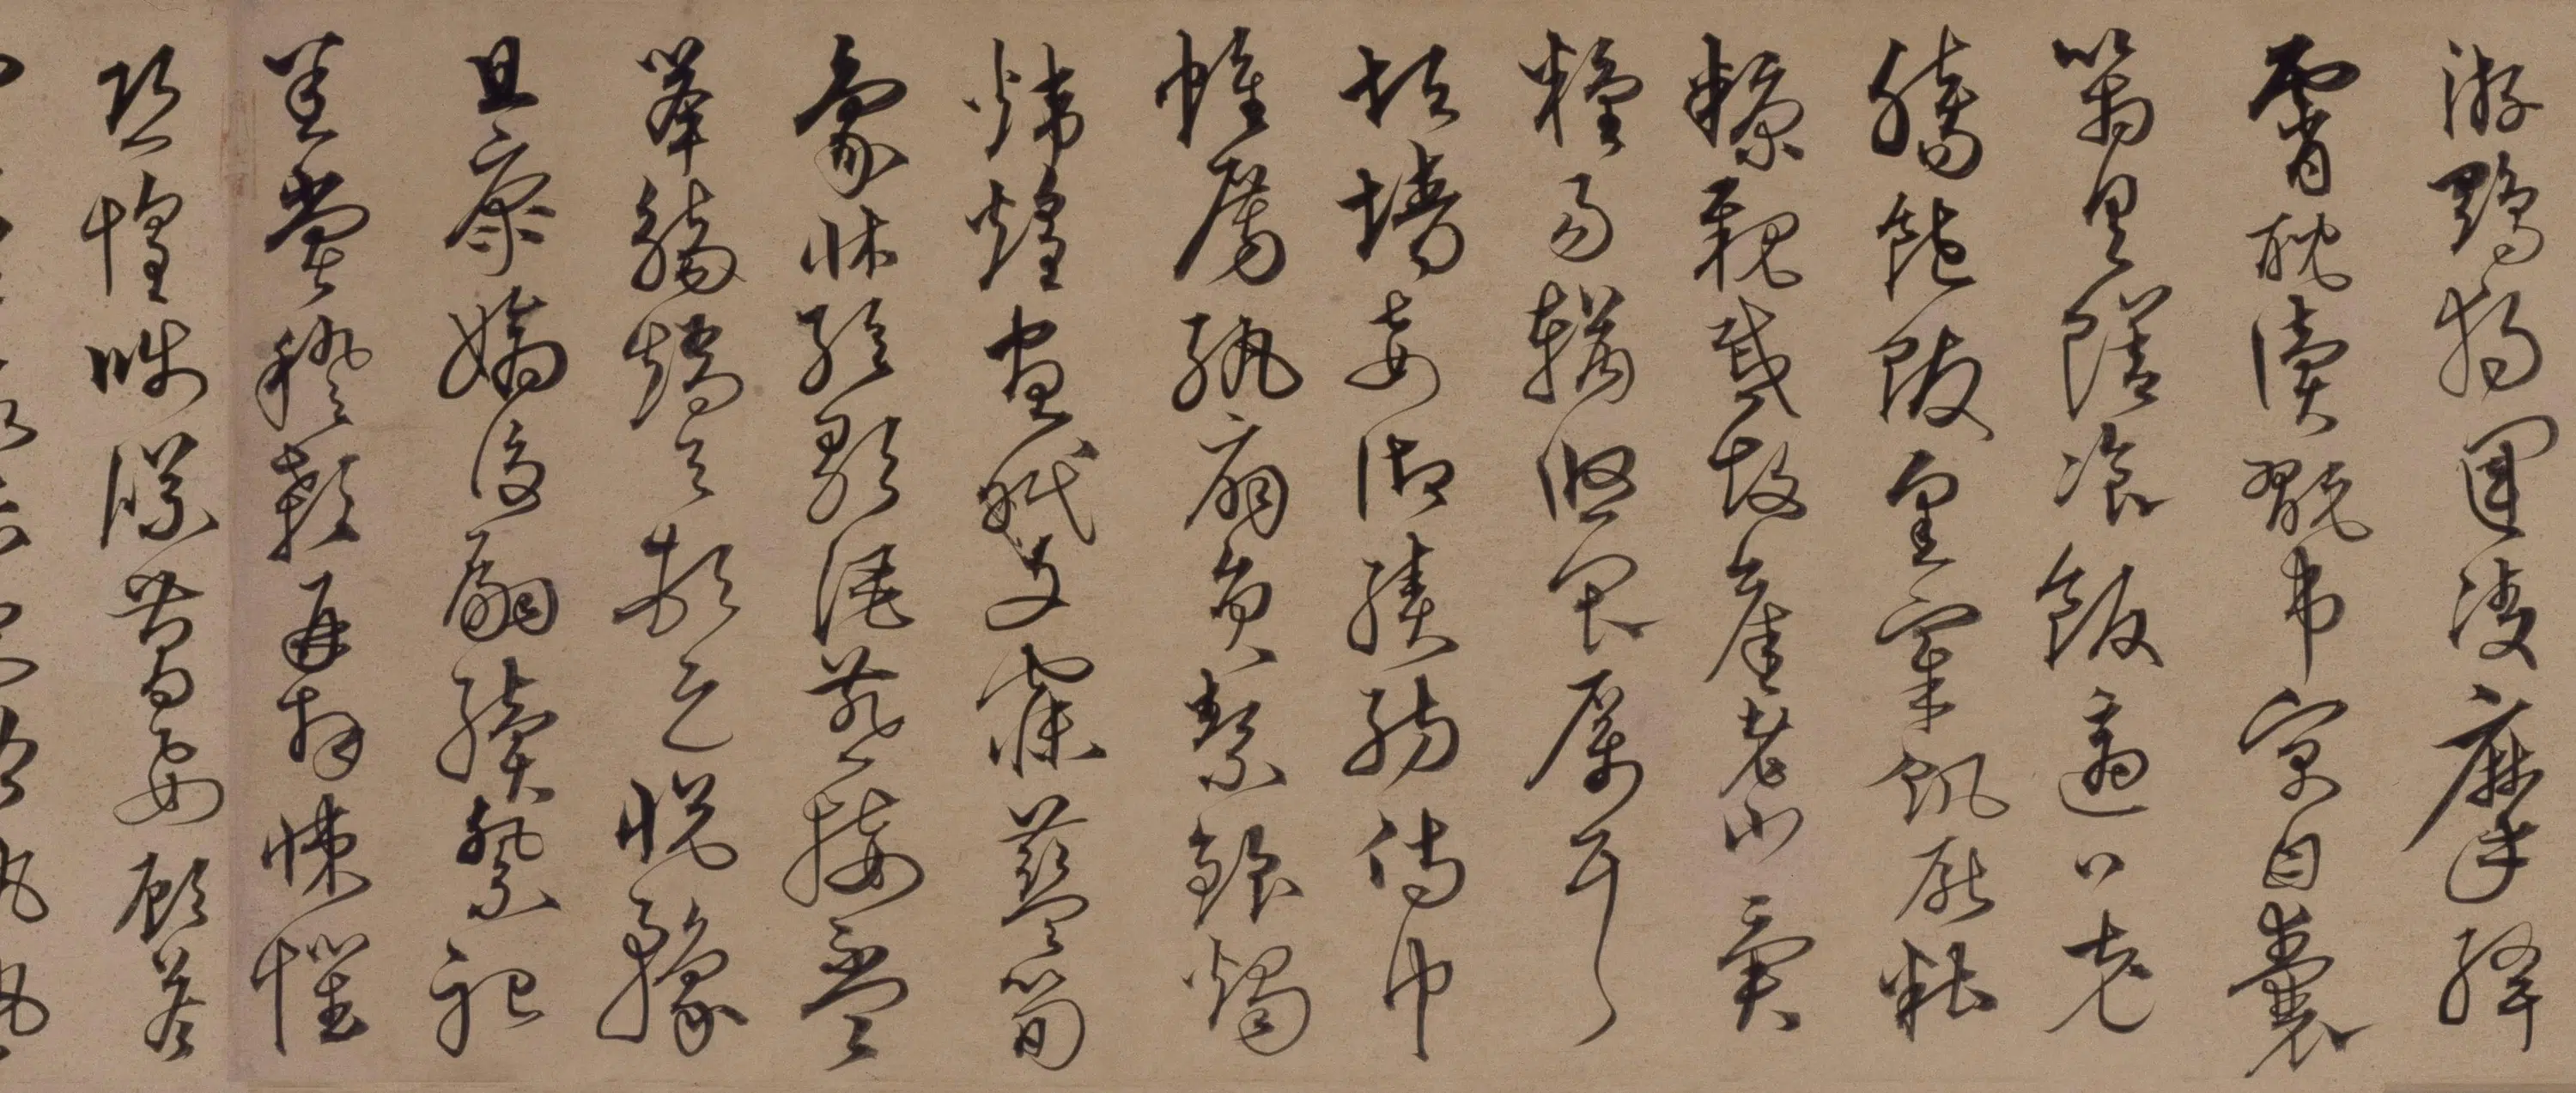 游鵾獨運淩摩絳
霄耽讀翫市寓目囊
箱具膳飡飯適口充
腸飽飫烹宰飢厭糟
糠親戚故舊老少異
糧易輶攸畏屬耳
垣墻妾御績紡侍巾
帷房紈扇員絜銀燭
煒煌晝眠夕寐藍笋
象床絃歌酒讌接杯
舉觴矯手頓足悅豫
且康嫡後嗣續祭祀
蒸嘗稽顙再拜悚懼
恐惶牋牒簡要顧答